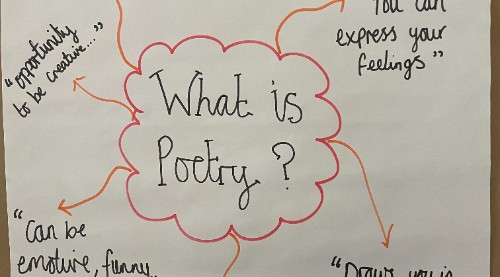 "opportunity
to be creative..."
You can
express your
feelings"
What is
Poetry?
"Can be
emotive, funny..
"Draws you in